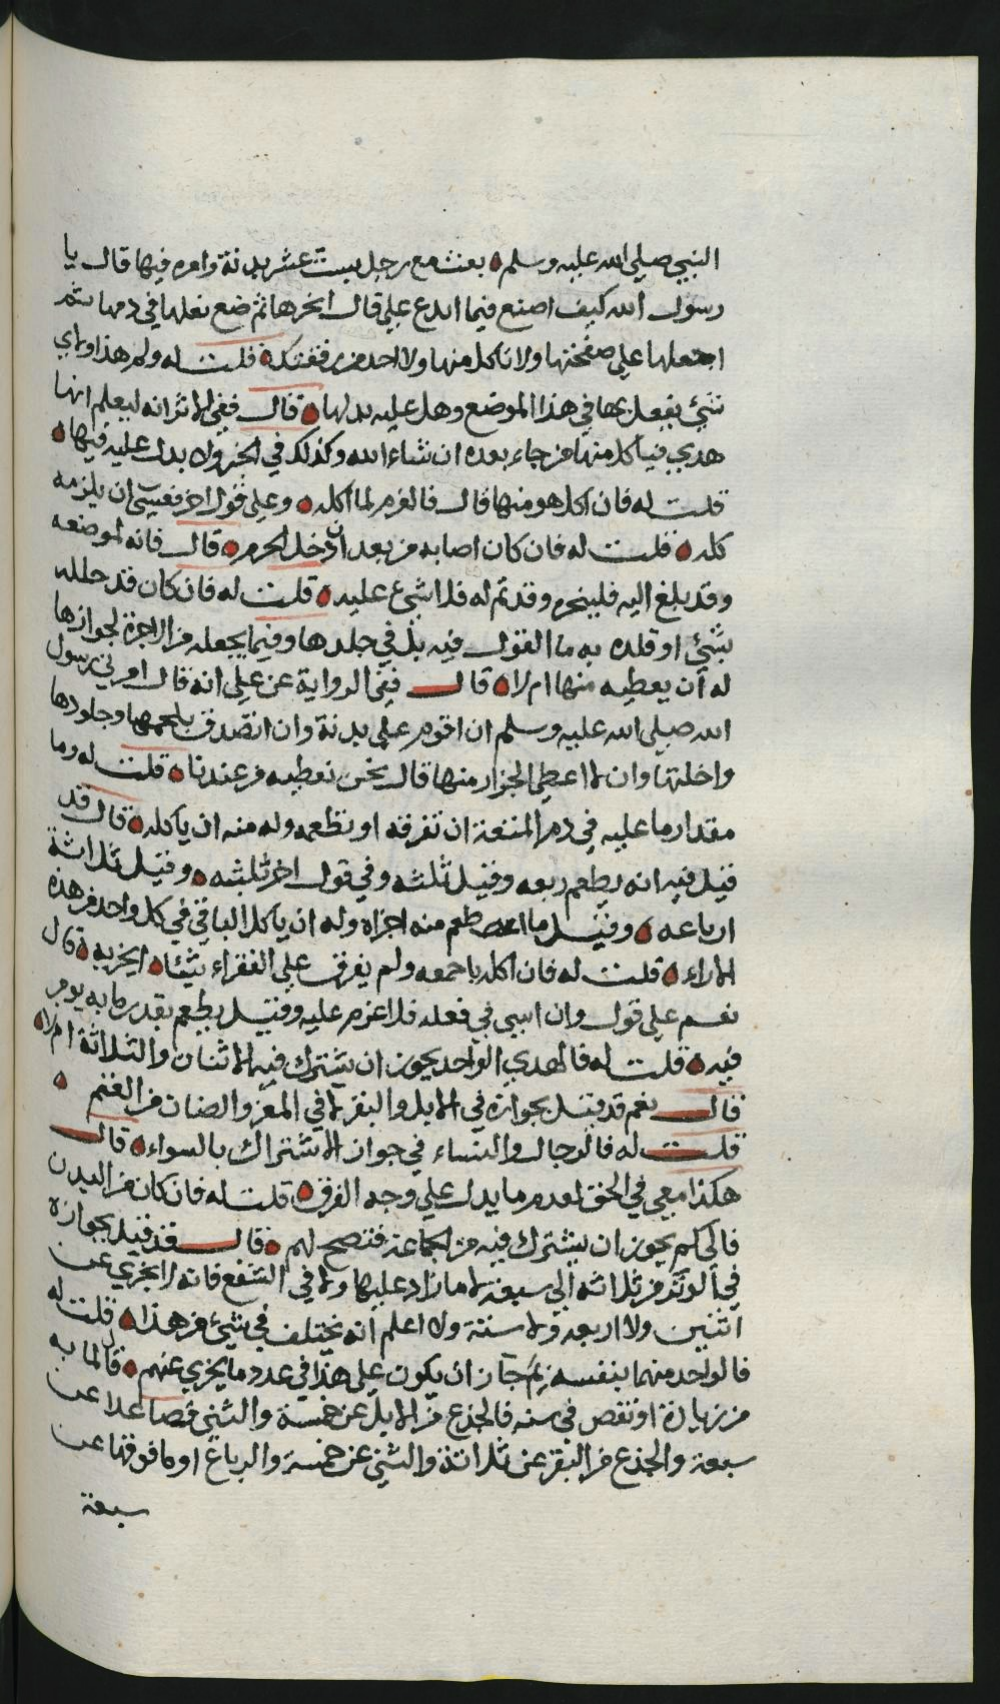 النبي صلي الله عليه وسلم بعث مع رجل بست عشر بدنة وامره فيها قال يا
رسول الله كيف اصنع فيما ابدع علي قال انحرها ثم ضع نعلها في دمها ثم
اجعلها علي صفحتها ولا تاكل منها ولا احد من رفقتك قلت له ولم هذا ولاي
شيء يفعل بها في هذا الموضع وهل عليه بدلها قال ففي الاثر انه ليعلم انها
هدي فياكل منها من جاء بعده ان شاء الله وكذلك في النحر ولا بدل عليه فيها
قلت له فان اكل هو منها قال فالغرم لما اكله وعلي قول اخر فعسى ان يلزمه
كله قلت له فان كان اصابه من بعد ان دخل الحرم قال فانه لموضعه
وقد بلغ اليه فلينحره وقد تم له فلا شيء عليه قلت له فان كان قد جلله
بشيء او قلده به ما القول فيه بل في جلدها وفيما يجعله من الاجرة لجوازها
له أن يعطيه منها ام لا قال ففي الرواية عن علي انه قال امرني رسول
الله صلي الله عليه وسلم ان اقوم علي بدنة وان اتصدق بلحمها وجلودها
واجلتها وان لا اعطي الجزار منها قال نحن نعطيه من عندنا قلت له وما
مقدار ما عليه في دم المتعة ان تفرقه او تطعمه وله منه ان ياكله قال قد
قيل فيه انه يطعم ربعه وقيل ثلثه وفي قول اخر ثلثيه وقيل ثلاثة
ارباعه وقيل ما اطعم منه اجزاه وله ان ياكل الباقي في كل واحد من هذه
الاراء قلت له فان اكله باجمعه ولم يفرق علي الفقراء شيئا ايجزيه قال
نعم علي قول وان اسى في فعله فلا غرم عليه وقيل يطعم بقدر ما به يومر
فيه قلت له فالهدي الواحد يجوز ان يشترك فيه الاثنان والثلاثة ام لا
قال نعم قد قيل بجوازه في الابل والبقر لا في المعز والضان من الغنم
قلت له فالرجال والنساء في جواز الاشتراك بالسواء قال
هكذا معي في الحق لعدم ما يدل علي وجه الفرق قلت له فان كان من البدن
فالى كم يجوز ان يشترك فيه من الجماعة فتصح لهم قال قد قيل بجوازه
في الوتر من ثلاثه الي سبعة لا ما زاد عليها ولا في الشفع فانه لا يجزي عن
اثنين ولا اربعه ولا ستة ولا اعلم انه يختلف في شيء من هذا قلت له
فالواحد منهما بنفسه لم جاز ان يكون علي هذا في عدد ما يجزي عنهم قال لما به
من زيادة او نقص في سنه فالجذع من الابل عن خمسة والثني فصاعدا عن
سبعة والجذع من البقر عن ثلاثة والثني عن خمسة والرباع او ما فوقها عن
سبعة